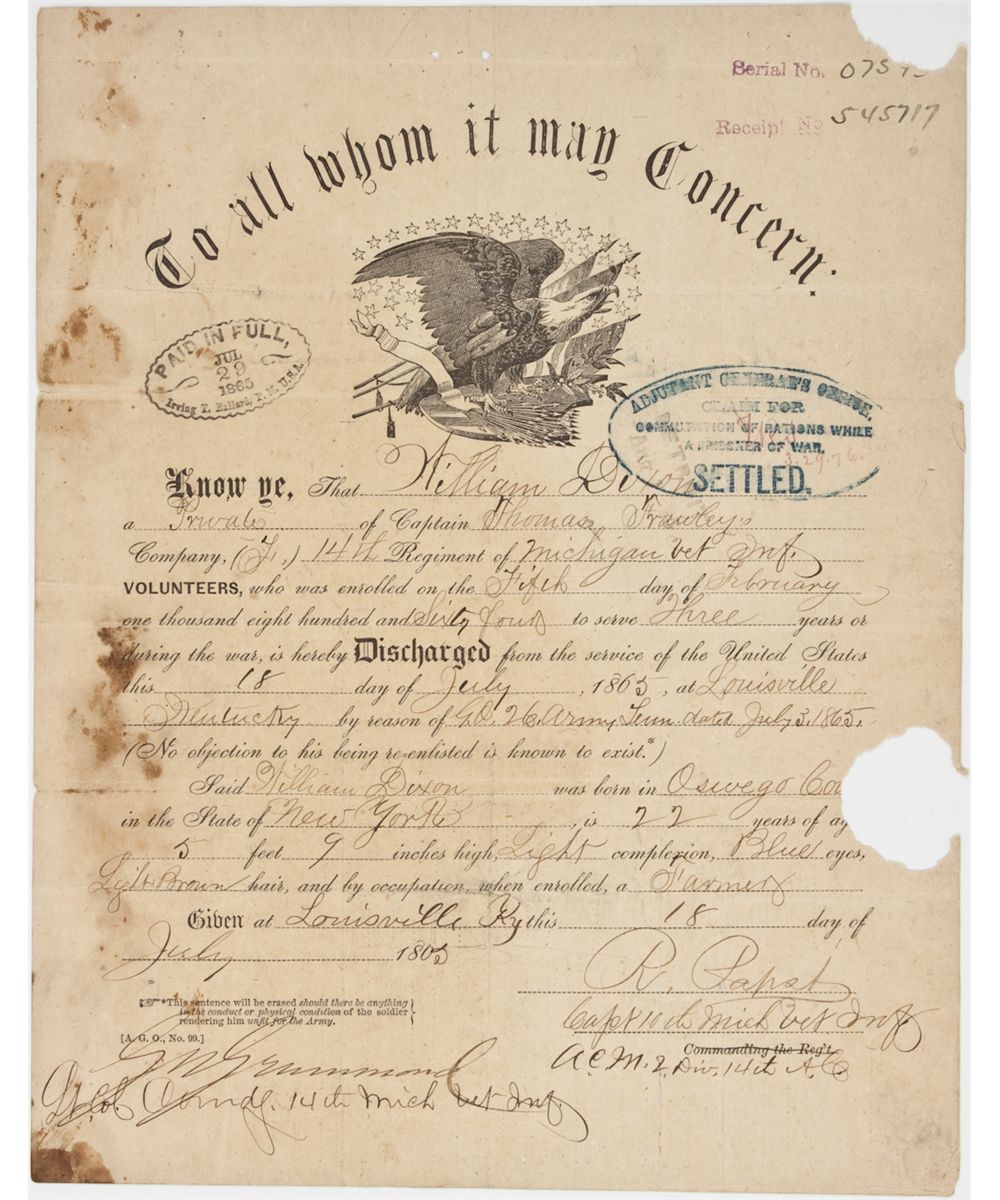 Serial No. 
Receipt No 545717
To all whom it may Concern:
PAID IN FULL,
JUL
29
1865
Irving T. Ballard, P. M. U.S.A.
ADJUTANT GENERAL'S OFFICE,
CLAIM FOR
COMMUTATION OF RATIONS WHILE
A PRISONER OF WAR,
3.29.76.
SETTLED,
Know ye, That William Dixon
a Private of Captain Thomas Frawleys
Company, ( ) 14th Regiment of Michigan vet Inf.
VOLUNTEERS, who was enrolled on the Fifth day of February
one thousand eight hundred and Sixty four to serve Three years or
during the war, is hereby Discharged from the service of the United States
this 18 day of July, 1865, at Louisville
Kentucky by reason of G.O. 26. Army Tenn dated July 3. 1865.
(No objection to his being re-enlisted is known to exist.*)
Said William Dixon was born in Oswego Cou
in the State of New York, is 22 years of ag
5 feet 9 inches high, Light complexion, Blue eyes,
Light Brown hair, and by occupation, when enrolled, a Farmer
Given at Louisville Ky this 18 day of
July 1865
R. Papst
Capt 10th Mich Vet Inf
Commanding the Reg't.
A.C.M. 2 Div. 14th A.C
*This sentence will be erased should there be anything
in the conduct or physical condition of the soldier
rendering him unfit for the Army.
[A. G. O., No. 99.]
Grummond
Lt. Col. Comdg. 14th Mich Vet Inf.